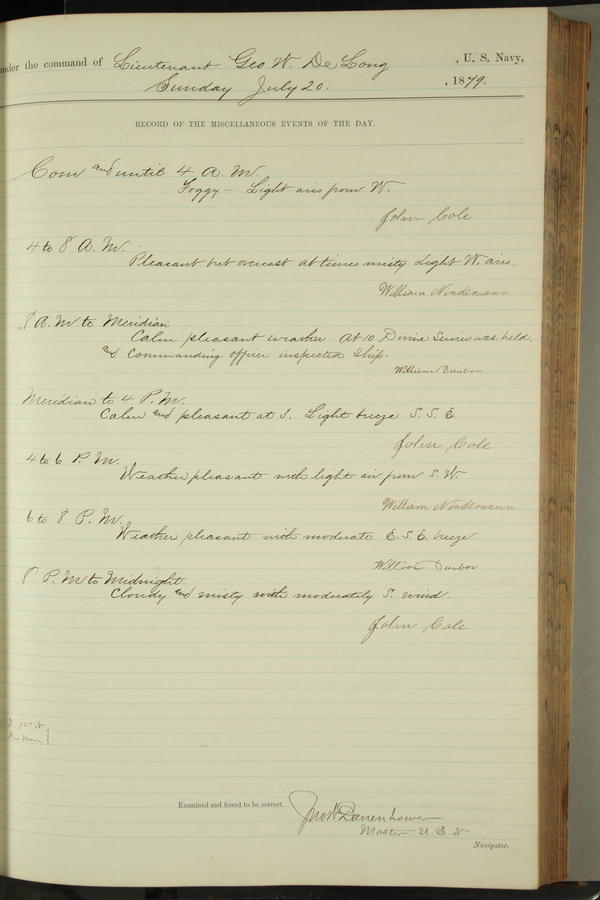 under the command of Lieutenant Geo. W. De Long, U. S. Navy,
Sunday July 20. , 1879.
RECORD OF THE MISCELLANEOUS EVENTS OF THE DAY.
Com and until 4 A. M.
Foggy – Light airs from W.
John Cole
4 to 8 A. M.
Pleasant but overcast at times misty Light W. airs.
William Nindemann
8 A. M to Meridian
Calm pleasant weather At 10 Divine Service was held,
and Commanding officer inspected Ship.
William Dunbar
Meridian to 4 P. M.
Calm and pleasant at 3. Light breeze S. S. E.
John Cole
4 to 6 P. M.
Weather pleasant with light air from S. W.
William Nindemann
6 to 8 P. M.
Weather pleasant with moderate E. S. E. breeze
William Dunbar
8 P. M to Midnight.
Cloudy and misty with moderately S. wind.
John Cole
Examined and found to be correct.
Jno W Danenhower
Master U. S. N
Navigator.